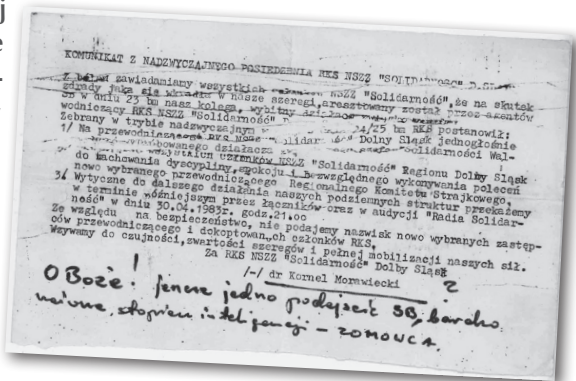 j
e
KOMUNIKAT Z NADZWYCZAJNEGO POSIEDZENIA RKS NSZZ "SOLIDARNOŚĆ" D.
Z bólem zawiadamiamy wszystkich NSZZ "Solidarność", że na skutek
zdrady jaka się wkradła w nasze szeregi, aresztowany został przez agentów
SB w dniu 23 bm nasz kolega, wybitny działacz
wodniczący RKS NSZZ "Solidarność"
Zebrany w trybie nadzwyczajnym 24/25 bm RKS postanowił:
1/ Na przewodniczącego RKS NSZZ "Solidarność" Dolny Śląsk jednogłośnie
działacza Solidarności Wal-
wszystkich członków NSZZ "Solidarność" Regionu Dolny Śląsk
do zachowania dyscypliny, spokoju i bezwzględnego wykonywania poleceń
nowo wybranego przewodniczącego Regionalnego Komitetu Strajkowego,
3/ Wytyczne do dalszego działania naszych podziemnych struktur przekażemy
w terminie późniejszym przez łączników oraz w audycji "Radia Solidar-
ność" w dniu 30.04.1983r. godz.21.00
Ze względu na bezpieczeństwo, nie podajemy nazwisk nowo wybranych zastęp-
ców przewodniczącego i dokoptowanych członków RKS,
Wzywamy do czujności, zwartości szeregów i pełnej mobilizacji naszych sił.
Za RKS NSZZ "Solidarność" Dolby Śląsk
/-/ dr Kornel Morawiecki ?
O Boże! jeszcze jedno podejście SB, bardzo
naiwne, stopień inteligencji – ZOMOWCA.